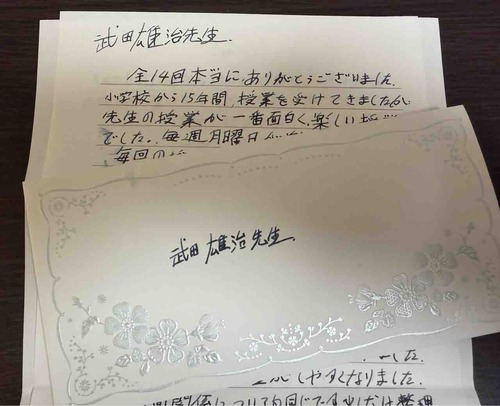 武田雄治先生
全14回本当にありがとうございました。
小学校から15年間、授業を受けてきましたが
先生の授業が一番面白く、楽しい
でした。毎週月曜日
毎回の
武田雄治先生
した。
しやすくなりました。